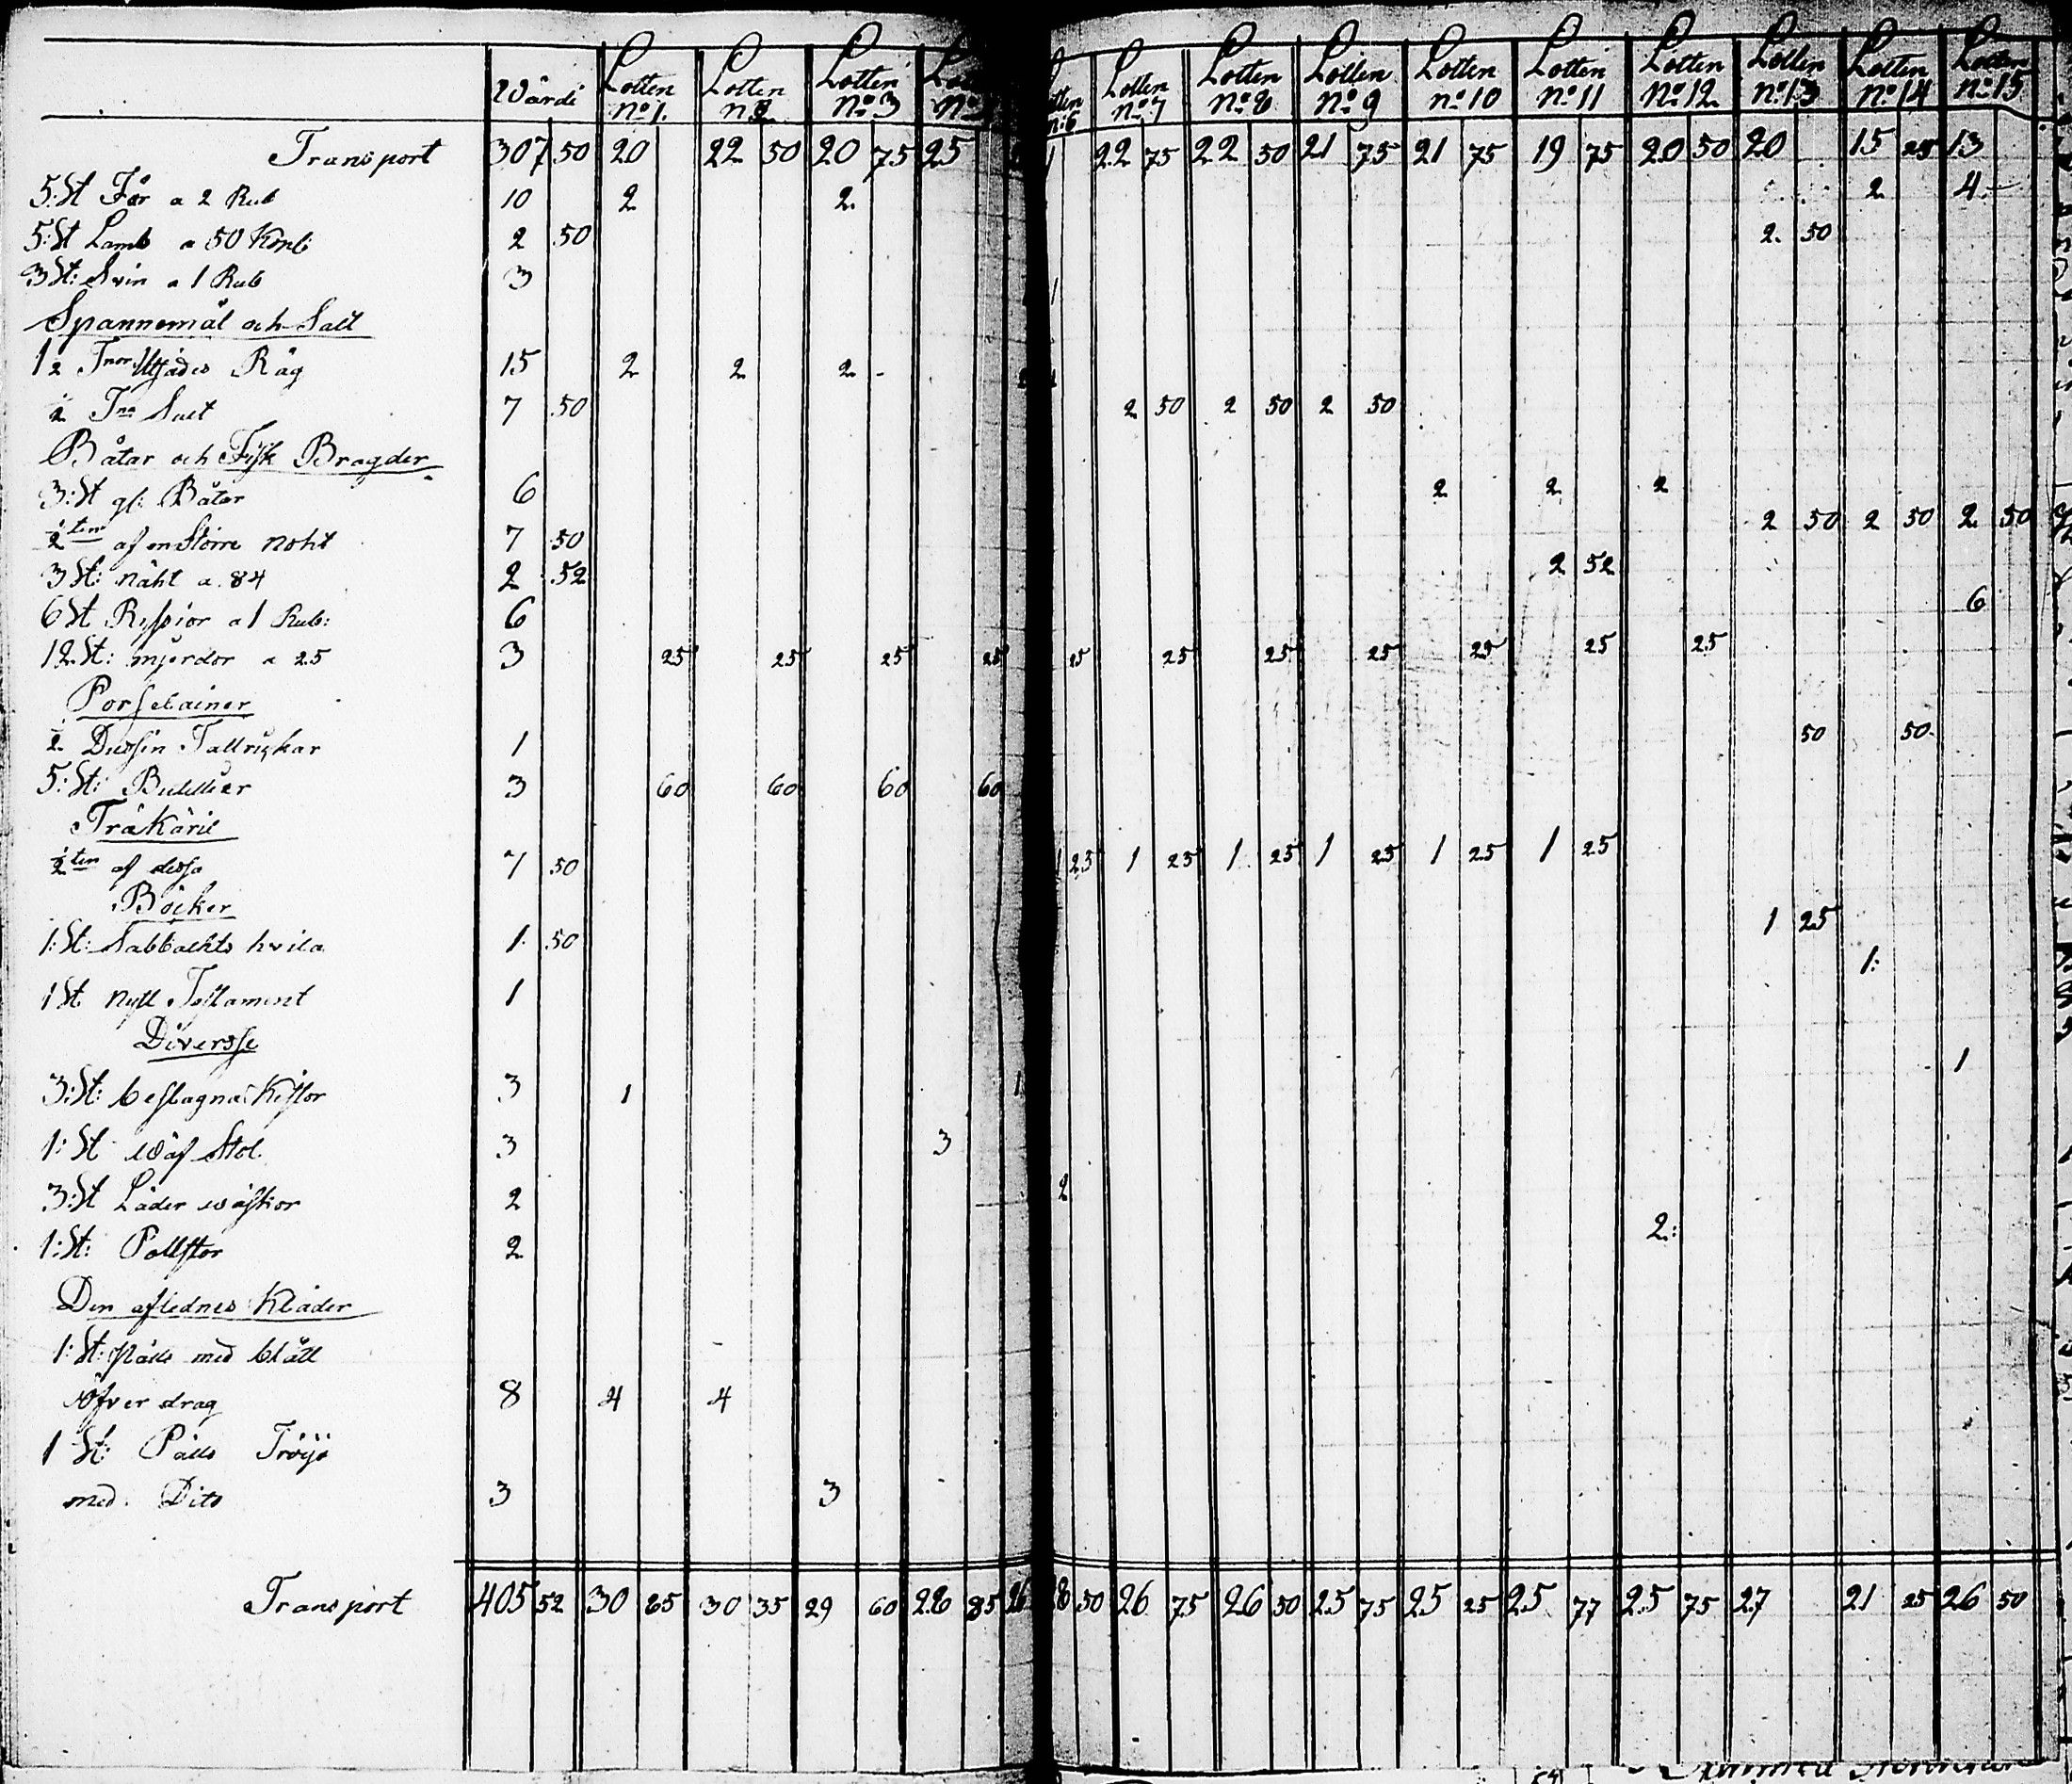 Wärde Lotten no 1. Lotten no 2 Lotten No 3 No Lotten No 7 Lotten No 8 Lotten No 9 Lotten no 10 Lotten No 11 Lotten No 12 Lotten no 13 Lotten No 14 Lotten no 15
Transport 307 50 20 22 50 20 75 25 22 75 22 50 21 75 21 75 19 75 20 50 20 15 25 13
5:St Får a 2 Rub 10 2 2. 2 4
5:St Lamb a 50 Kope: 2 50 2. 50
3 St: Svin a 1 Rub 3
Spannemål och Salt
Råg 15 2 2 2
1/2 Tna Salt 7 50 2 50 2 50 2 50
Båtar och Fisk Bragder
3:St gl: Båtar 6 2 2 2
1/2ten af en Störe noht 7 50 2 50 2 50 2 50
3 St: näht a 84 2 52 2 52
6 St Ryssior a 1 Rub: 6 6
12 St: mjerdor a 25 3 25 25 25 25 25 25 25 25 25 25 25
Porselainer
1/2 Dussin Tallrickar 1 50 50
5:St: Buttlier 3 60 60 60 60
Träkäril
1/2ten af dessa 7 50 1 25 1 25 1 25 1 25 1 25 1 25
Böcker
1:St: Sabbathts hvila 1 50 1 25
1 St. nytt Testament 1 1:
Diversse
3:St: beslagna Kistor 3 1 1 1
1:St wäf Stol 3 3
3:St Läder wäskor 2 2
1:St: Pallstor 2 2:
Den aflednes Kläder
1:St: päls med blått
öfver drag 8 4 4
1 St: Päls Tröje
med Dito 3 3
Transport 405 52 30 85 30 35 29 60 28 85 26 28 50 26 75 26 50 25 75 25 25 25 77 25 75 27 21 25 26 50